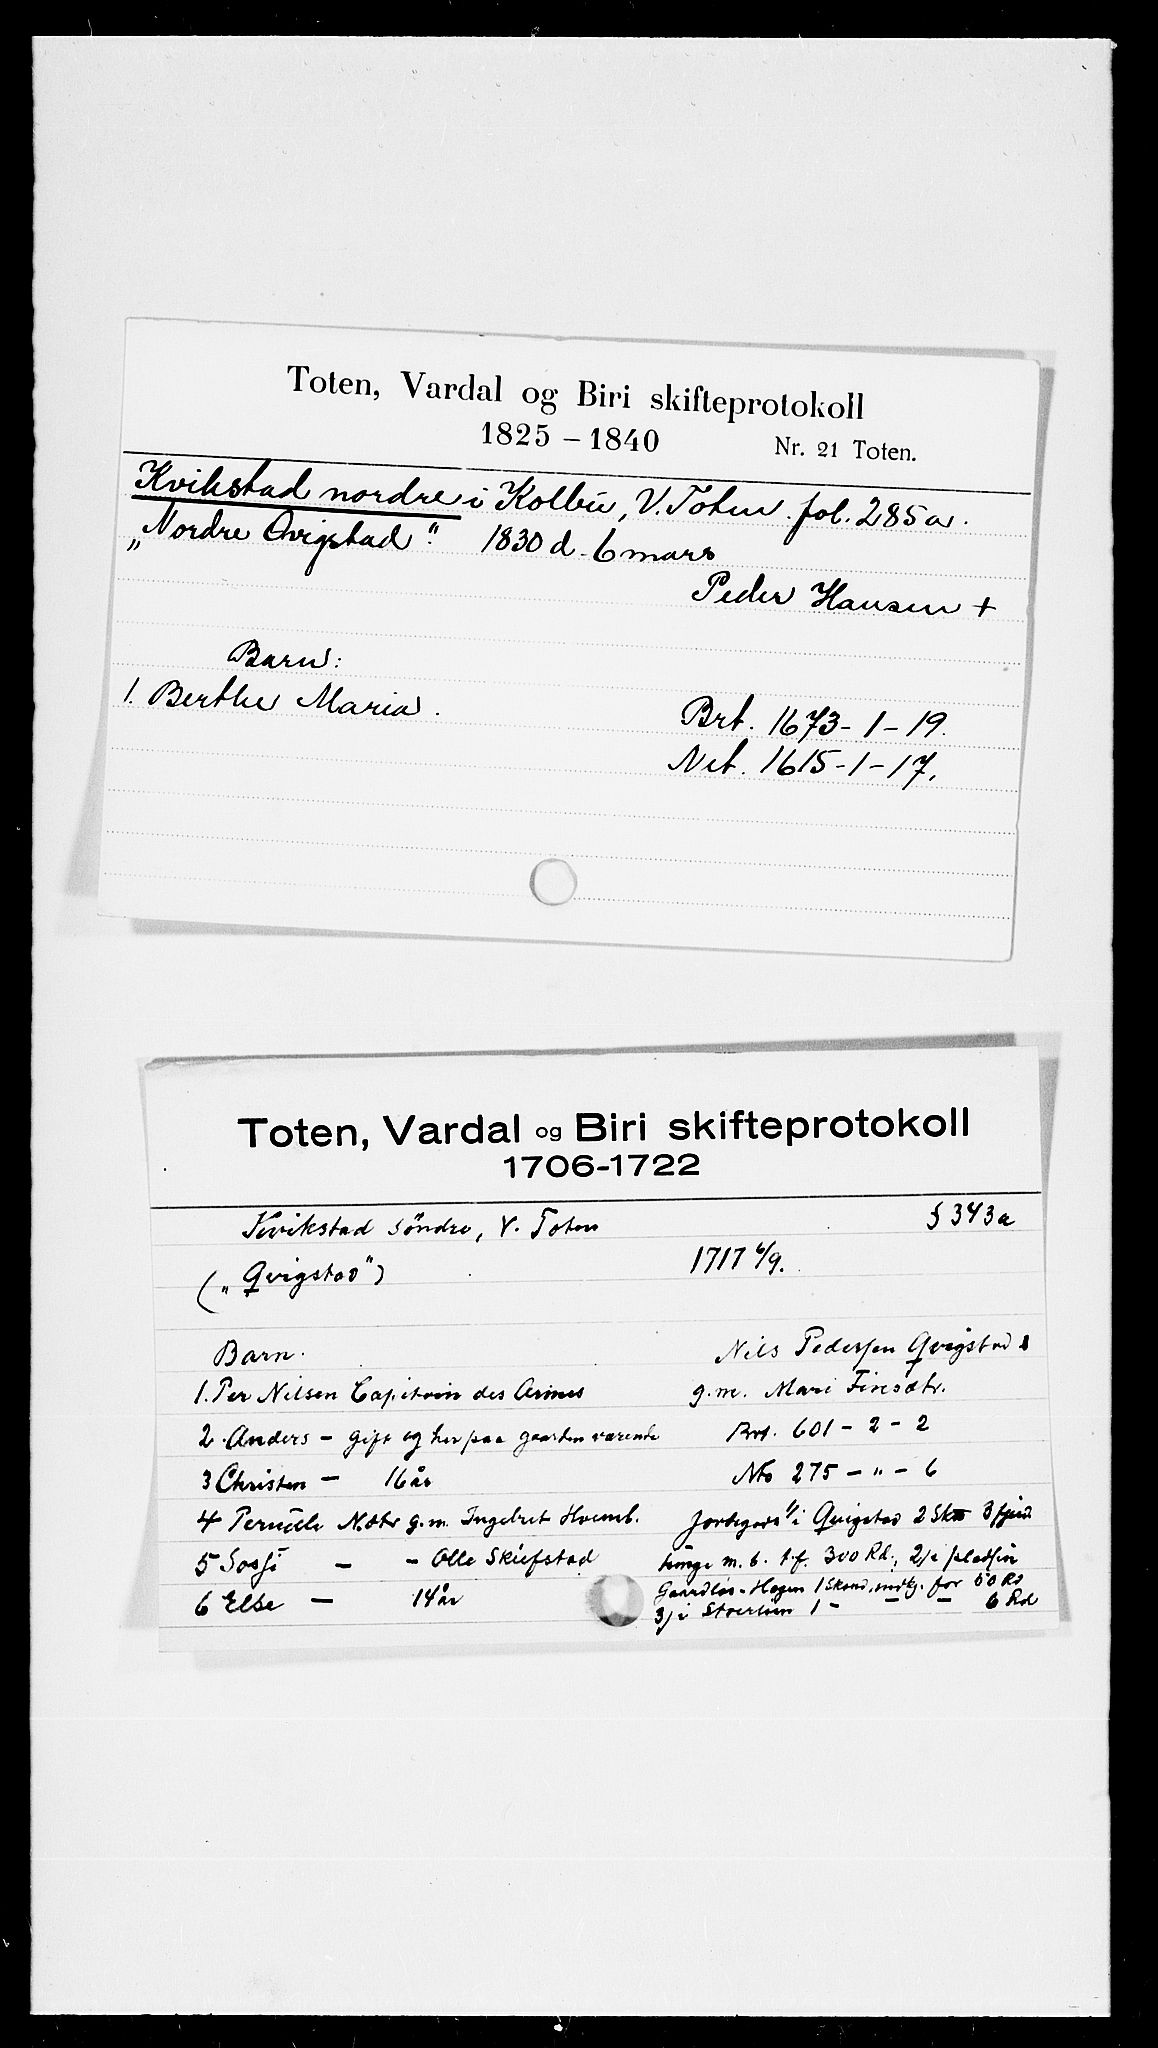 Toten, Vardal og Biri skifteprotokoll
1825 – 1840 Nr. 21 Toten.
Kvikstad nordre i Kolbu, V. Toten. fol. 285a.
„Nordre Qvigstad“ 1830 d. 6 mars
Peder Hansen +
Barn:
1. Berthe Maria. Brt. 1673 - 1 - 19.
Net. 1615 - 1 - 17.
Toten, Vardal og Biri skifteprotokoll
1706-1722
Kvikstad söndre, V. Toten § 343a
(„Qvigstad“) 1717 6/9.
Barn. Nils Pedersen Qvigstad
1. Per Nilsen Capitain des Armes g.m. Mari Finsdtr.
2. Anders - gift og her paa gaarden værende Brt. 601 - 2 - 2
3 Christen - 16 år Nto 275 - „ - 6
4 Pernille N.dtr g.m. Ingebret Hvemb. Jordegods 1/ i Qvigstad 2 Sk 3 fjerd.
5 Sossi - - Olle Skiefstad tunge m. b. t. f. 300 Rd., 2/ i pladsen
6 Else - 14 år Gaardløs-Hagen 1 Skind, m. b. for 50 Rd
3/ i 1 - - - 6 Rd